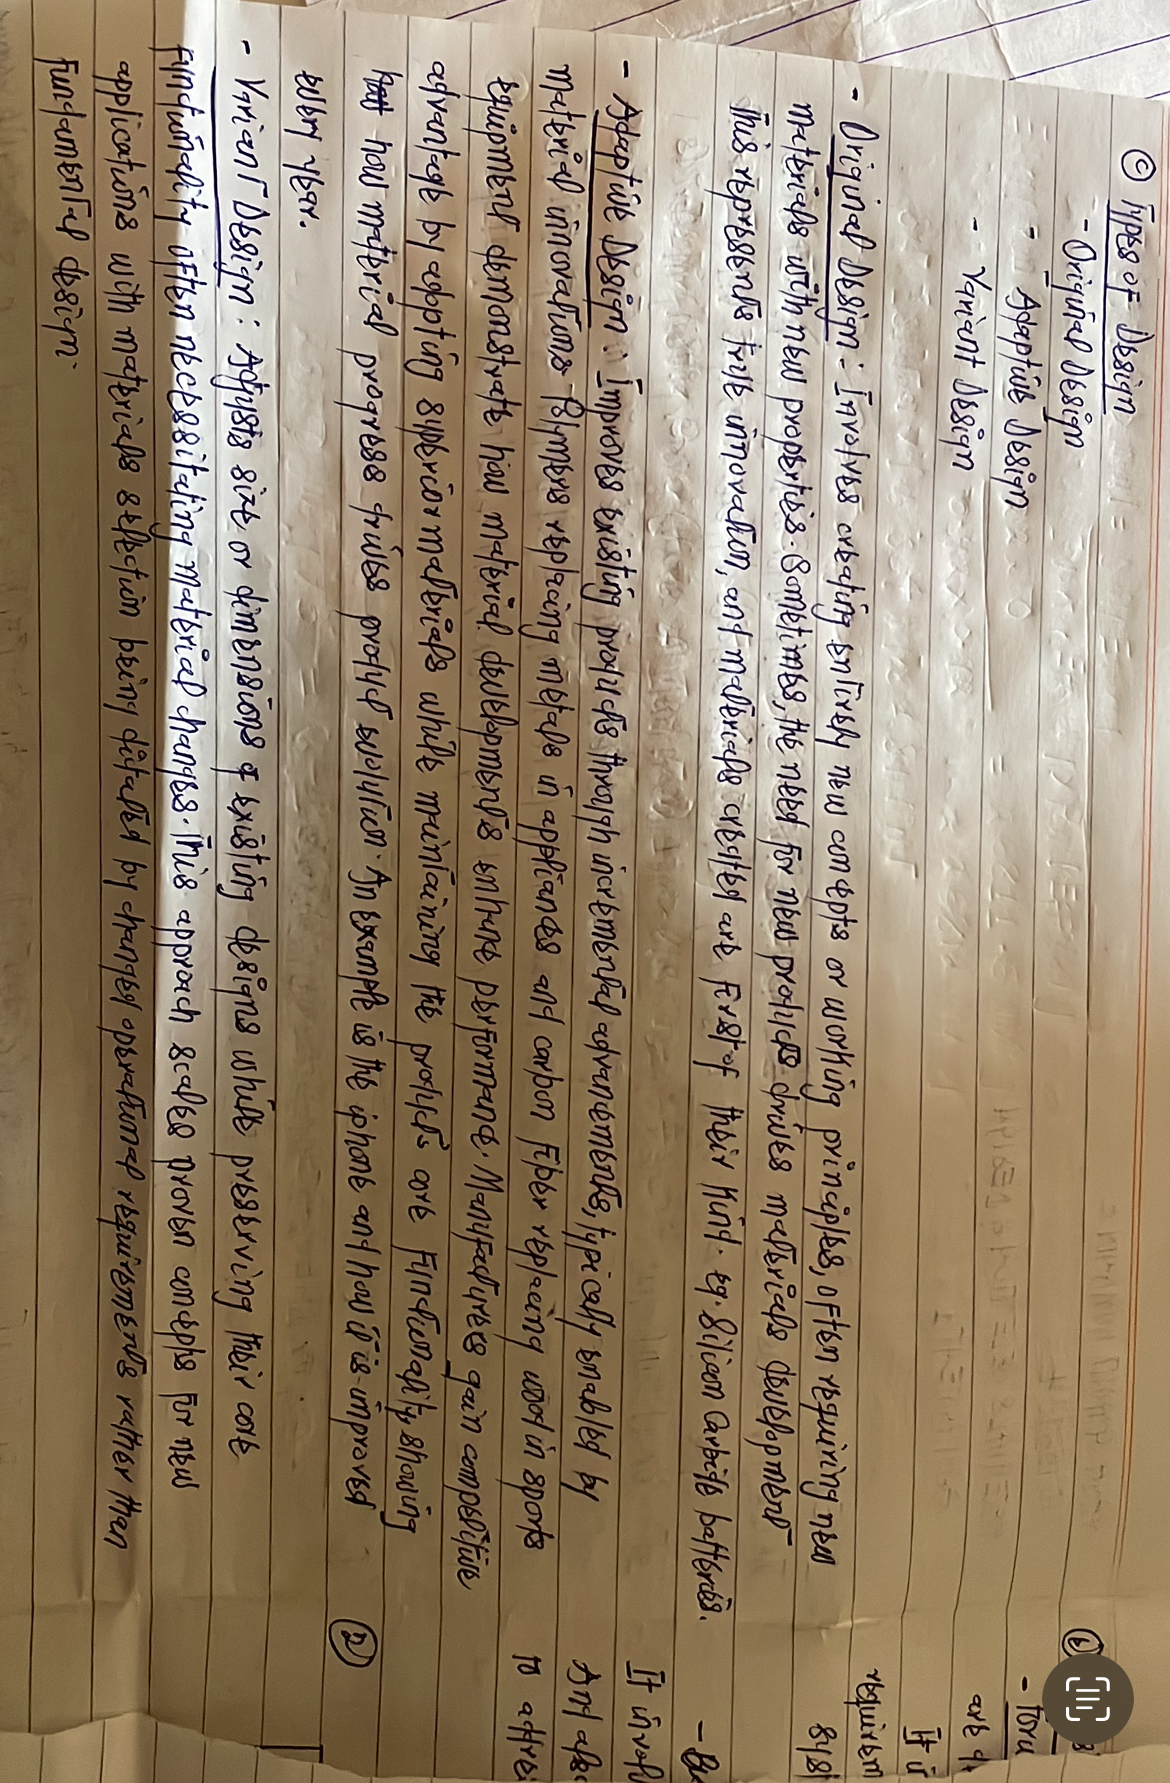 © Types of Design
- Original Design
- Adaptive Design
- Variant Design
- Original Design : Involves creating entirely new concepts or working principles, often requiring new
materials with new properties. Sometimes, the need for new products drives materials development
This represents true innovation, and materials created are first of their kind. eg. Silicon Carbide batteries.
- Adaptive Design : Improves existing products through incremental advancements, typically enabled by
material innovations. Polymers replacing metals in appliances and carbon fiber replacing wood in sports
equipment demonstrate how material developments enhance performance. Manufactures gain competitive
advantage by adopting superior materials while maintaining the product's core functionality, showing
how material progress drives product evolution. An example is the iphone and how it is improved
every year.
- Variant Design : Adjusts size or dimensions of existing designs while preserving their core
functionality often necessitating material changes. This approach scales proven concepts for new
applications with materials selection being dictated by changed operational requirements rather than
fundamental design.
②
are
It
requirem
It involv
And
to